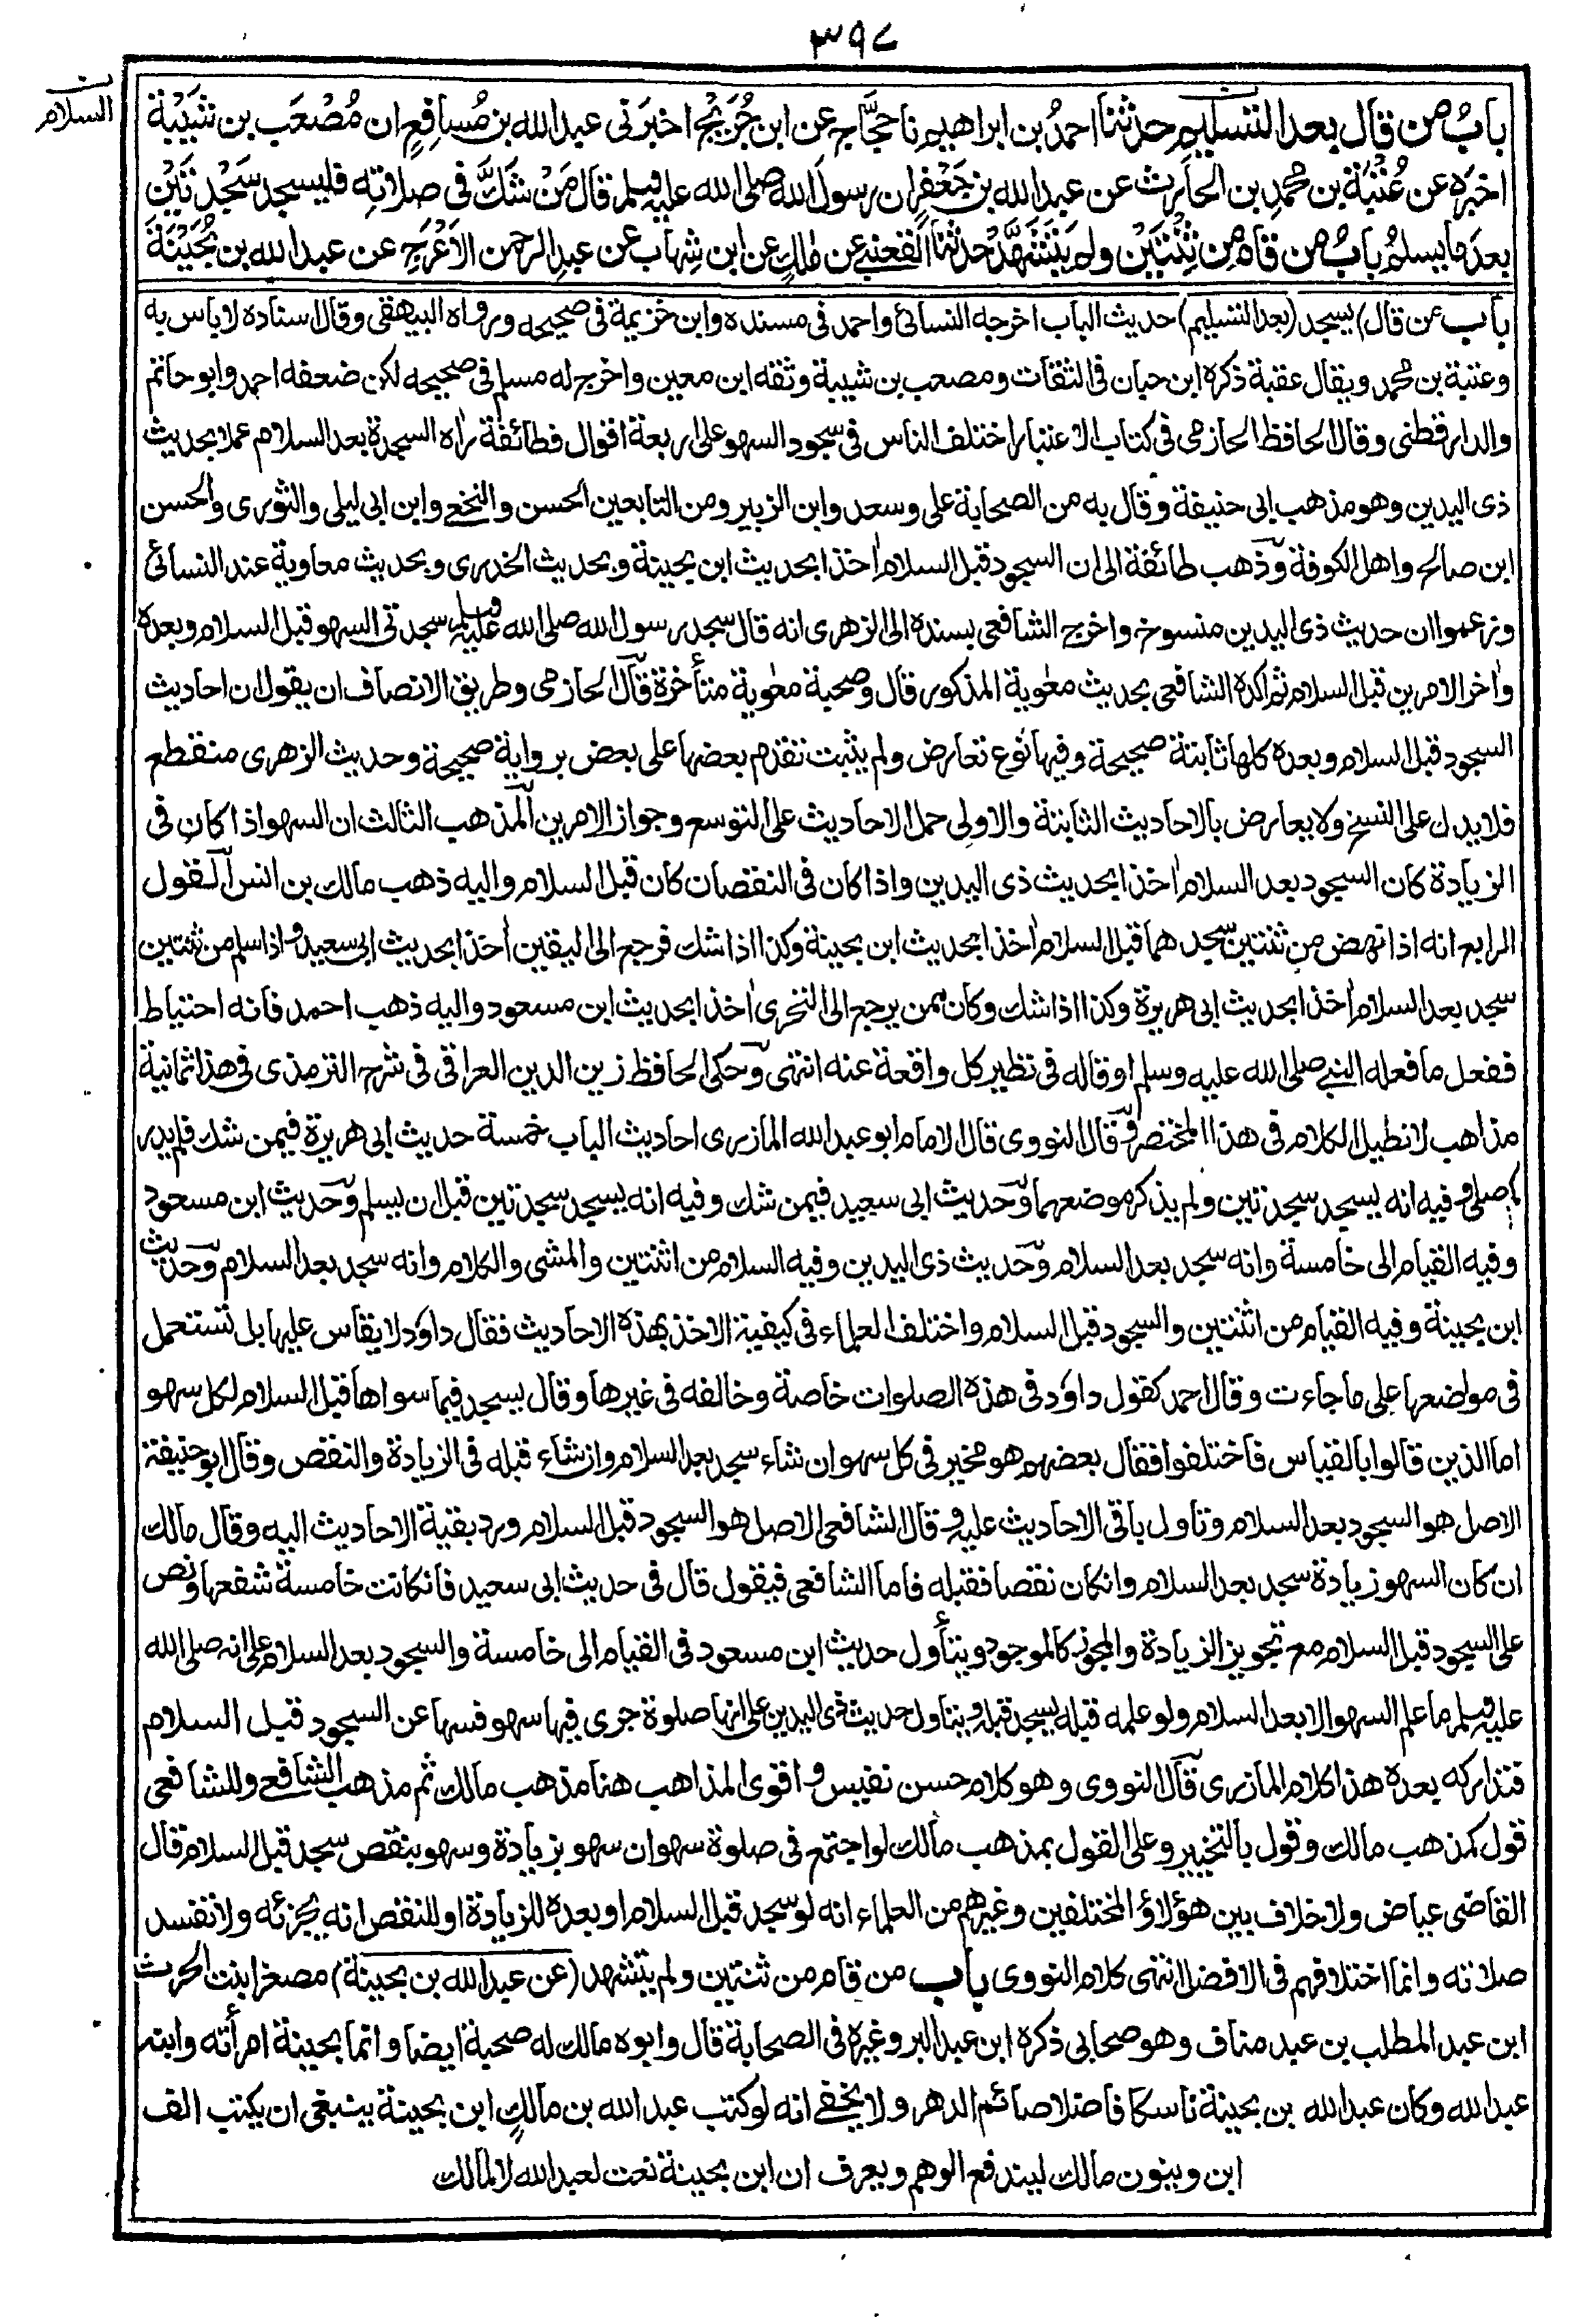 ٣٩٧
السلام
بابُ من قال بعد التسليم حدثنا احمدُ بن ابراهيم نا حجَّاج عن ابن جُرَيْجٍ اخبرَنى عبدالله بن مُسافِعٍ ان مُصْعَب بن شَيْبَةَ
اخبرَه عن عُتْبَةَ بن محمدِ بن الحارث عن عبدالله بن جَعْفرٍ ان رسولَ الله صلى الله عليه وسلم قال مَنْ شَكَّ فى صلاتِه فليسجد سَجْدتَيْنِ
بعدَ ما يسلمُ بابُ من قامَ مِن ثِنْتَيْن ولم يَتَشَهَّدْ حدثنا القعنبى عن مالكٍ عن ابن شِهاب عن عبدِ الرحمن الاَعْرَجِ عن عبد الله بن بُحَيْنَةَ
باب من قال) يسجد (بعد التسليم) حديث الباب اخرجه النسائى واحمد فى مسنده وابن خزيمة فى صحيحه ورواه البيهقى وقال اسناده لا باس به
وعتبة بن محمد ويقال عقبة ذكره ابن حبان فى الثقات ومصعب بن شيبة وثقه ابن معين واخرج له مسلم فى صحيحه لكن ضعفه احمد وابو حاتم
والدارقطنى وقال الحافظ الحازمى فى كتاب الاعتبار اختلف الناس فى سجود السهو على اربعة اقوال فطائفة راٰه السجدة بعد السلام عملا بحديث
ذى اليدين وهو مذهب ابى حنيفة وقال به من الصحابة على وسعد وابن الزبير ومن التابعين الحسن والنخعى وابن ابى ليلى والثورى والحسن
ابن صالح واهل الكوفة وذهب طائفة الى ان السجود قبل السلام اخذا بحديث ابن بحينة وبحديث الخدرى وبحديث معاوية عند النسائى
وزعموا ان حديث ذى اليدين منسوخ واخرج الشافعى بسنده الى الزهرى انه قال سجد رسول الله صلى الله عليه وسلم سجدتى السهو قبل السلام وبعده
واٰخر الامرين قبل السلام ثم اكده الشافعى بحديث معٰوية المذكور قال وصحبة معٰوية متأخرة قال الحازمى وطريق الانصاف ان يقول ان احاديث
السجود قبل السلام وبعده كلها ثابتة صحيحة وفيها نوع تعارض ولم يثبت تقدم بعضها على بعض برواية صحيحة وحديث الزهرى منقطع
فلا يدل على النسخ ولا يعارض بالاحاديث الثابتة والاولى حمل الاحاديث على التوسع وجواز الامرين المذهب الثالث ان السهو اذا كان فى
الزيادة كان السجود بعد السلام اخذا بحديث ذى اليدين واذا كان فى النقصان كان قبل السلام واليه ذهب مالك بن انس القول
الرابع انه اذا نهض من ثنتين سجدهما قبل السلام اخذا بحديث ابن بحينة وكذا اذا شك فرجع الى اليقين اخذا بحديث ابى سعيد واذا سلم من ثنتين
سجد بعد السلام اخذا بحديث ابى هريرة وكذا اذا شك وكان ممن يرجع الى التحرى اخذا بحديث ابن مسعود واليه ذهب احمد فانه احتياط
ففعل ما فعله النبى صلى الله عليه وسلم او قاله فى نظير كل واقعة عنه انتهى وحكى الحافظ زين الدين العراقى فى شرح الترمذى فى هذا ثمانية
مذاهب لا نطيل الكلام فى هذا المختصر وقال النووى قال الامام ابو عبد الله المازرى احاديث الباب خمسة حديث ابى هريرة فيمن شك فلم يدر
كم صلى وفيه انه يسجد سجدتين ولم يذكر موضعهما وحديث ابى سعيد فيمن شك وفيه انه يسجد سجدتين قبل ان يسلم وحديث ابن مسعود
وفيه القيام الى خامسة وانه سجد بعد السلام وحديث ذى اليدين وفيه السلام من اثنتين والمشى والكلام وانه سجد بعد السلام وحديث
ابن بحينة وفيه القيام من اثنتين والسجود قبل السلام واختلف العلماء فى كيفية الاخذ بهذه الاحاديث فقال داود لا يقاس عليها بل تستعمل
فى مواضعها على ما جاءت وقال احمد كقول داود فى هذه الصلوات خاصة وخالفه فى غيرها وقال يسجد فيما سواها قبل السلام لكل سهو
اما الذين قالوا بالقياس فاختلفوا فقال بعضهم هو مخير فى كل سهو ان شاء سجد بعد السلام وان شاء قبله فى الزيادة والنقص وقال ابو حنيفة
الاصل هو السجود بعد السلام وتاول باقى الاحاديث عليه وقال الشافعى الاصل هو السجود قبل السلام ورد بقية الاحاديث اليه وقال مالك
ان كان السهو زيادة سجد بعد السلام وانكان نقصا فقبله فاما الشافعى فيقول قال فى حديث ابى سعيد فانكانت خامسة شفعها ونص
على السجود قبل السلام مع تجويز الزيادة والمجوز كالموجود ويتأول حديث ابن مسعود فى القيام الى خامسة والسجود بعد السلام على انه صلى الله
عليه وسلم ما علم السهو الا بعد السلام ولو علمه قبله يسجد قبله ويتاول حديث ذى اليدين على انها صلوة جرى فيها سهو فسها عن السجود قبل السلام
فتداركه بعده هذا كلام المازرى قال النووى وهو كلام حسن نفيس واقوى المذاهب هنا مذهب مالك ثم مذهب الشافعى وللشافعى
قول كمذهب مالك وقول بالتخيير وعلى القول بمذهب مالك لو اجتمع فى صلوة سهوان سهو بزيادة وسهو بنقص سجد قبل السلام قال
القاضى عياض ولا خلاف بين هؤلاؤ المختلفين وغيرهم من العلماء انه لو سجد قبل السلام او بعده للزيادة او للنقص انه يجزئه ولا تفسد
صلاته وانما اختلافهم فى الافضل انتهى كلام النووى باب من قام من ثنتين ولم يتشهد (عن عبدالله بن بحينة) مصغرا بنت الحرث
ابن عبد المطلب بن عبد مناف وهو صحابى ذكره ابن عبد البر وغيره فى الصحابة قال وابوه مالك له صحبة ايضا وانما بحينة امرأته وابنه
عبد الله وكان عبد الله بن بحينة ناسكا فاضلا صائم الدهر ولا يخفى انه لو كتب عبد الله بن مالكٍ ابن بحينة ينبغى ان يكتب الف
ابن وينون مالك ليندفع الوهم ويعرف ان ابن بحينة نعت لعبد الله لا لمالك